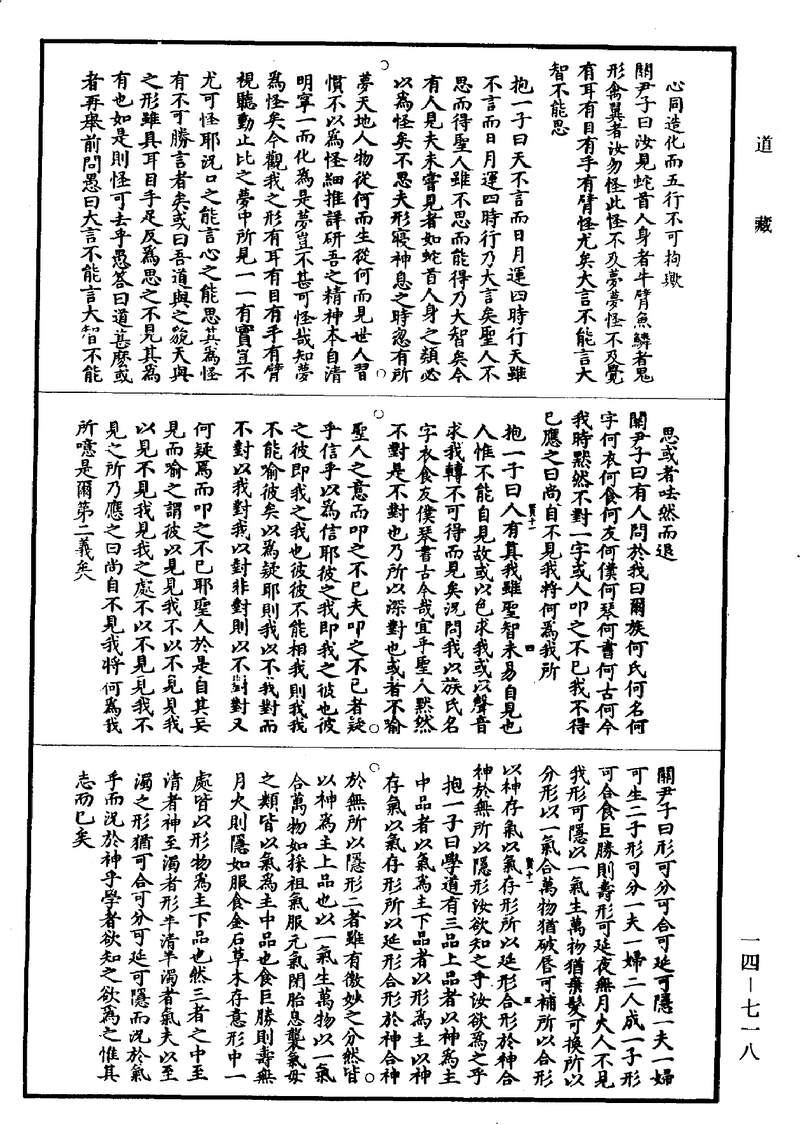 道藏
心同造化而五行不可拘歟
關尹子曰汝見蛇首人身者牛臂魚鱗者鬼
形禽翼者汝勿怪此怪不及夢夢怪不及覺
有耳有目有手有臂怪尤矣大言不能言大
智不能思
抱一子曰天不言而日月運四時行天雖
不言而日月運四時行乃大言矣聖人不
思而得聖人雖不思而能得乃大智矣今
有人見夫未嘗見者如蛇首人身之類必
以為怪矣不思夫形寢神息之時忽有所
夢天地人物從何而生從何而見世人習
慣不以為怪細推詳研吾之精神本自清
明寧一而化為是夢豈不甚可怪哉知夢
為怪矣今觀我之形有耳有目有手有臂
視聽動止比之夢中所見一一有實豈不
尤可怪耶況口之能言心之能思其為怪
有不可勝言者矣或曰吾道與之貌天與
之形雖具耳目手足反為思之不見其為
有也如是則怪可去乎愚答曰道甚麼或
者再舉前問愚曰大言不能言大智不能
思或者呿然而退
關尹子曰有人問於我曰爾族何氏何名何
字何衣何食何友何僕何琴何書何古何今
我時默然不對一字或人叩之不已我不得
已應之曰尚自不見我將何為我所
抱一子曰人有真我雖聖智未易自見也
人惟不能自見故或以色求我或以聲音
求我轉不可得而見矣況問我以族氏名
字衣食友僕琴書古今哉宜乎聖人默然
不對是不對也乃所以深對也或者不喻
聖人之意而叩之不已夫叩之不已者疑
乎信乎以為信耶彼之我即我之彼也彼
之彼即我之我也彼彼不能相我則我我
不能喻彼矣以為疑耶則我以不我對而
不對以我對我以對非對則以不對對又
何疑焉而叩之不已耶聖人於是自其妄
見而喻之謂彼以見見我不以不見見我
以見不見我見我之處不以不見見我不
見之所乃應之曰尚自不見我將何為我
所噫是爾第二義矣
關尹子曰形可分可合可延可隱一夫一婦
可生二子形可分一夫一婦二人成一子形
可合食巨勝則壽形可延夜無月火人不見
我形可隱以一氣生萬物猶棄髮可換所以
分形以一氣合萬物猶破唇可補所以合形
以神存氣以氣存形所以延形合形於神合
神於無所以隱形汝欲知之乎汝欲為之乎
抱一子曰學道有三品上品者以神為主
中品者以氣為主下品者以形為主以神
存氣以氣存形所以延形合形於神合神
於無所以隱形二者雖有微妙之分然皆
以神為主上品也以一氣生萬物以一氣
合萬物如採祖氣服元氣閉胎息襲氣母
之類皆以氣為主中品也食巨勝則壽無
月火則隱如服食金石草木存意形中一
處皆以形物為主下品也然三者之中至
清者神至濁者形半清半濁者氣夫以至
濁之形猶可合可分可延可隱而況於氣
乎而況於神乎學者欲知之欲為之惟其
志而已矣
一四—七一八